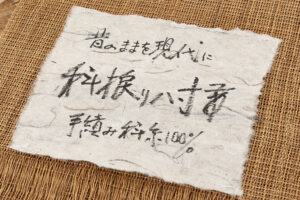 昔のままを現代に
科捩り八寸帯
手績み科糸100%